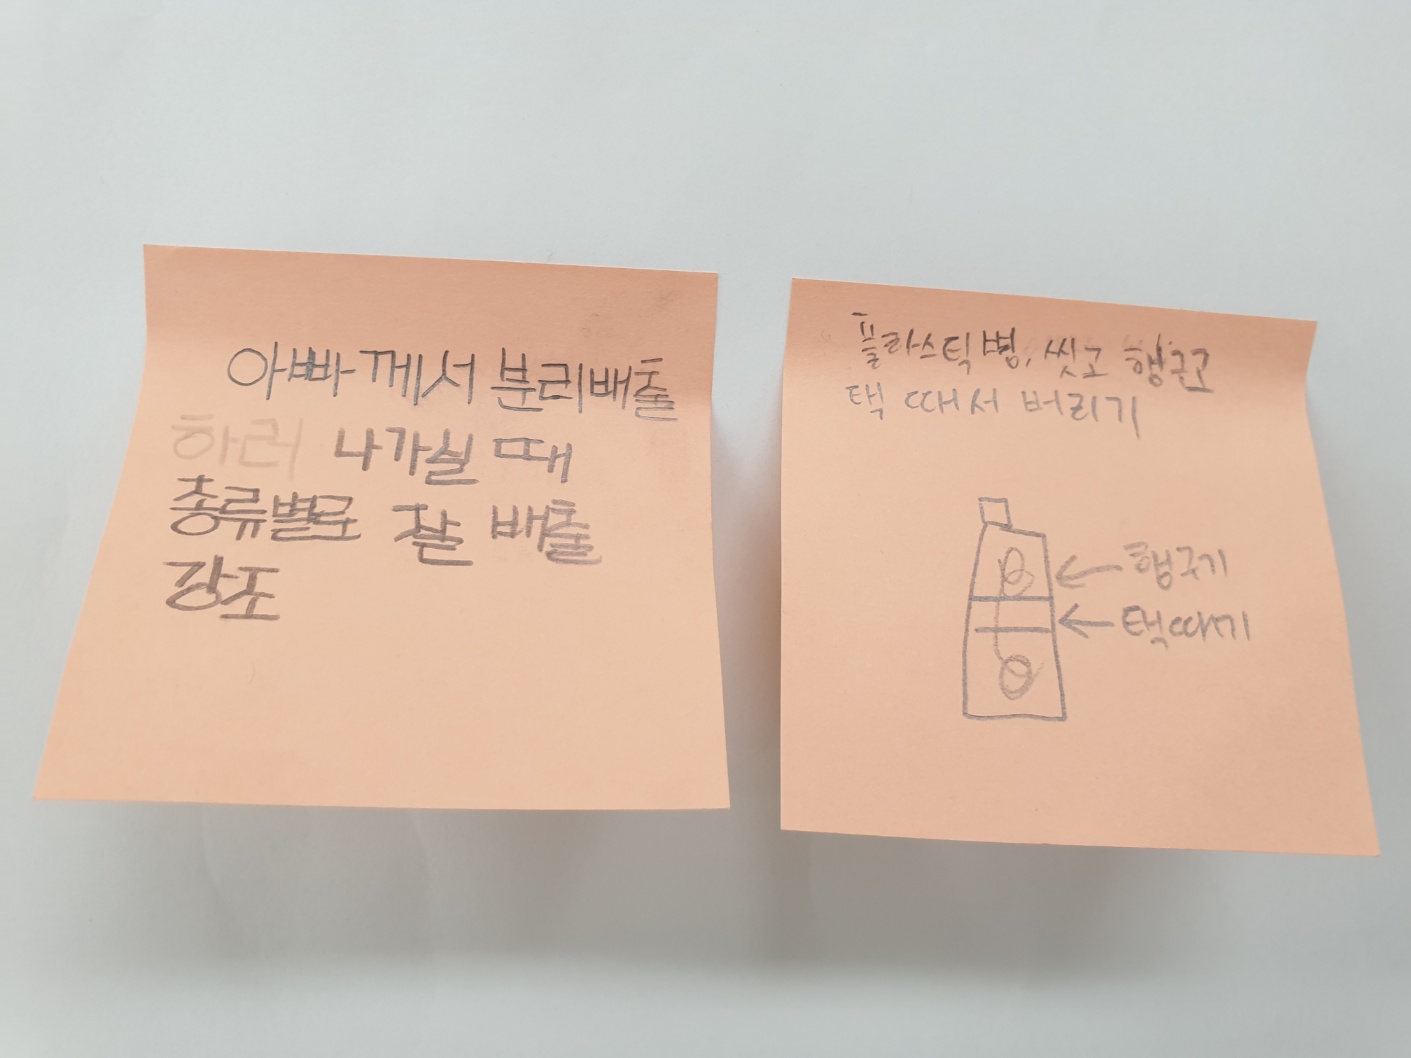 아빠께서 분리배출
하러 나가실 때
종류별로 잘 배출
강조
플라스틱병, 씻고 헹구고
택 떼서 버리기
헹구기
택따기